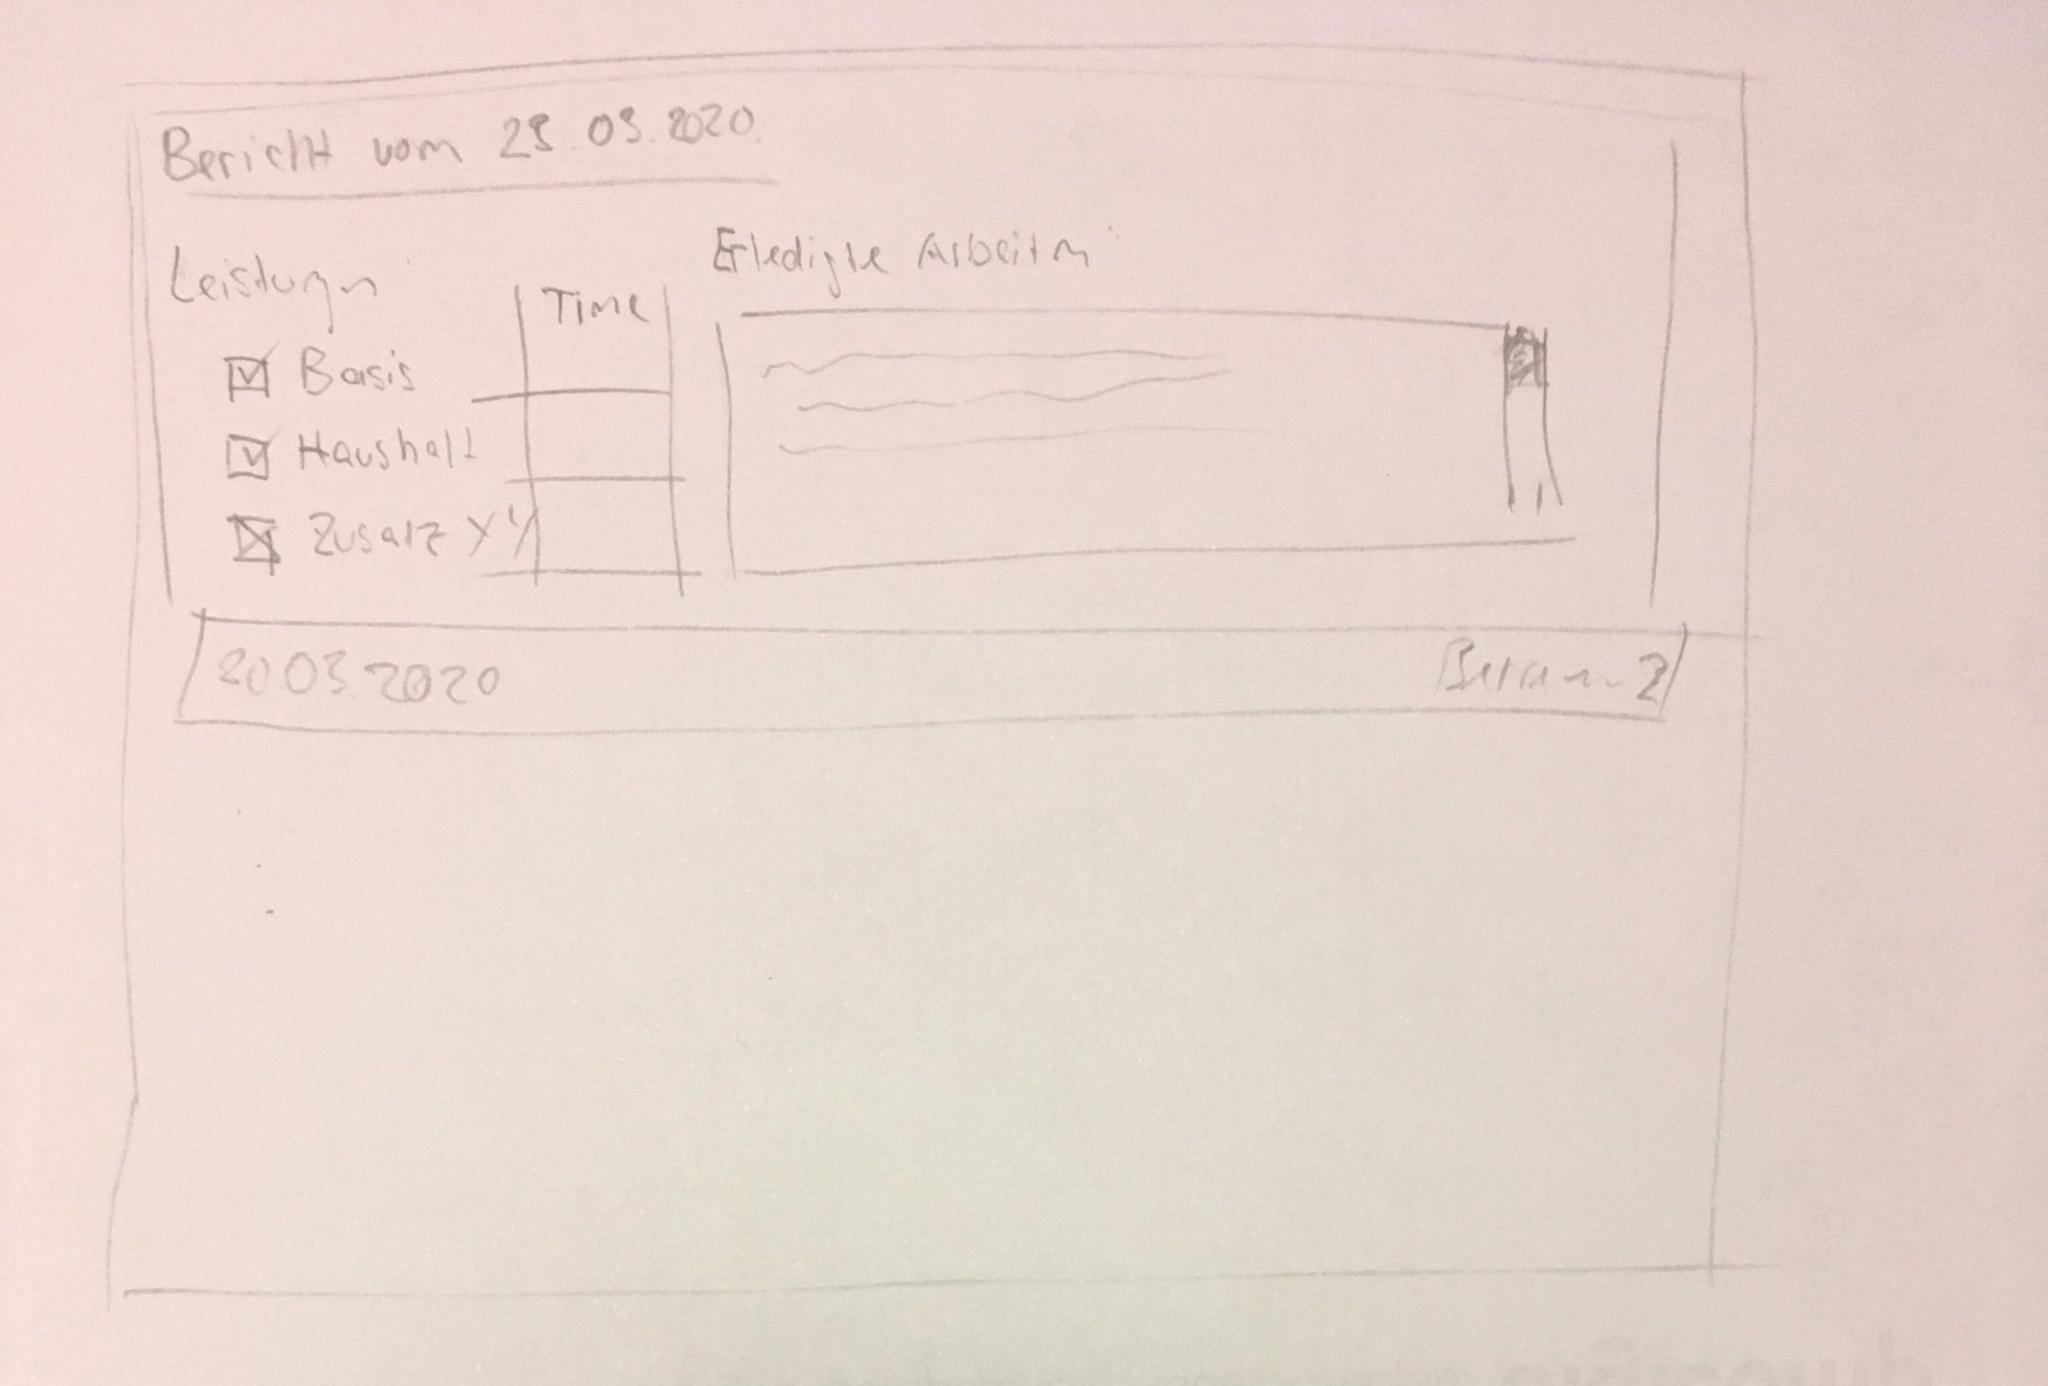 Bericht vom 23.03.2020
Leistungen
Time
Basis
Haushalt
Zusatz XY
Erledigte Arbeiten
20.03.2020